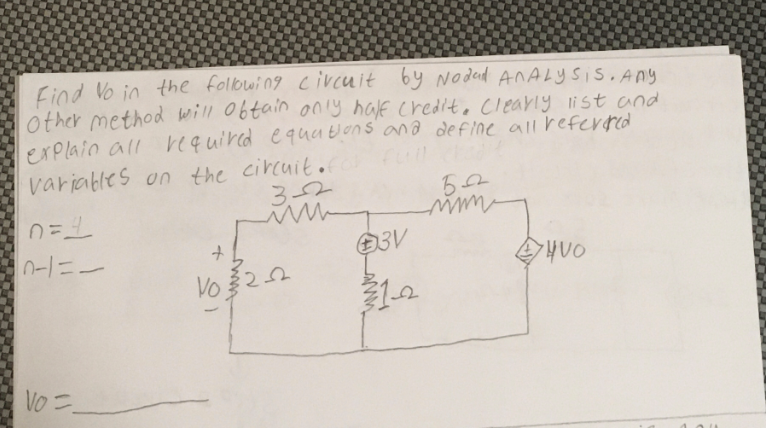 Find Vo in the following circuit by Nodal ANALYSIS. Any
other method will obtain only half credit. Clearly list and
explain all required equations and define all referred
variables on the circuit.
3Ω 5Ω
n=4
+ ±3V ± 4VO
n-1=_
VO 2Ω 1Ω
-
VO=